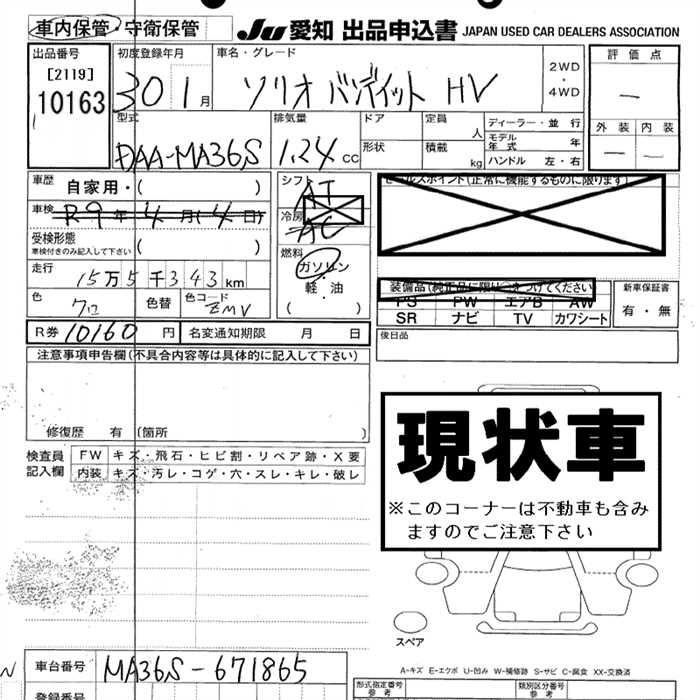 車内保管・守衛保管
JU 愛知 出品申込書 JAPAN USED CAR DEALERS ASSOCIATION
出品番号
[2119]
10163
初度登録年月
30 1 月
車名・グレード
ソリオ バンディット HV
2WD
・
4WD
評価点
―
外装 内装
― ―
型式
DAA-MA36S
排気量
1.24 cc
ドア
定員
人
形状
積載
kg
ディーラー・並行
モデル年式 年
ハンドル 左・右
車歴
自家用・( )
車検
R9年4月(4日)
受検形態
車検付きのみ記入して下さい ( )
走行
15万5千343km
色
クロ
色替
色コード
ZMV
シフト
AT
冷房
AC
燃料
ガソリン
・
軽・油
( )
セールスポイント(正常に機能するものに限ります)
装備品(純正品に限り○をつけてください)
PS PW エアB AW
SR ナビ TV カワシート
新車保証書
有・無
R券 10160 円
名変通知期限 月 日
後日品
注意事項申告欄(不具合内容等は具体的に記入して下さい)
修復歴 有 〔箇所 〕
検査員記入欄
FW キズ・飛石・ヒビ割・リペア跡・X要
内装 キズ・汚レ・コゲ・穴・スレ・キレ・破レ
現状車
※このコーナーは不動車も含み
ますのでご注意下さい
スペア
A-キズ E-エクボ U-凹み W-補修跡 S-サビ C-腐食 XX-交換済
車台番号
MA36S-671865
登録番号
型式指定番号
参考
類別区分番号
参考